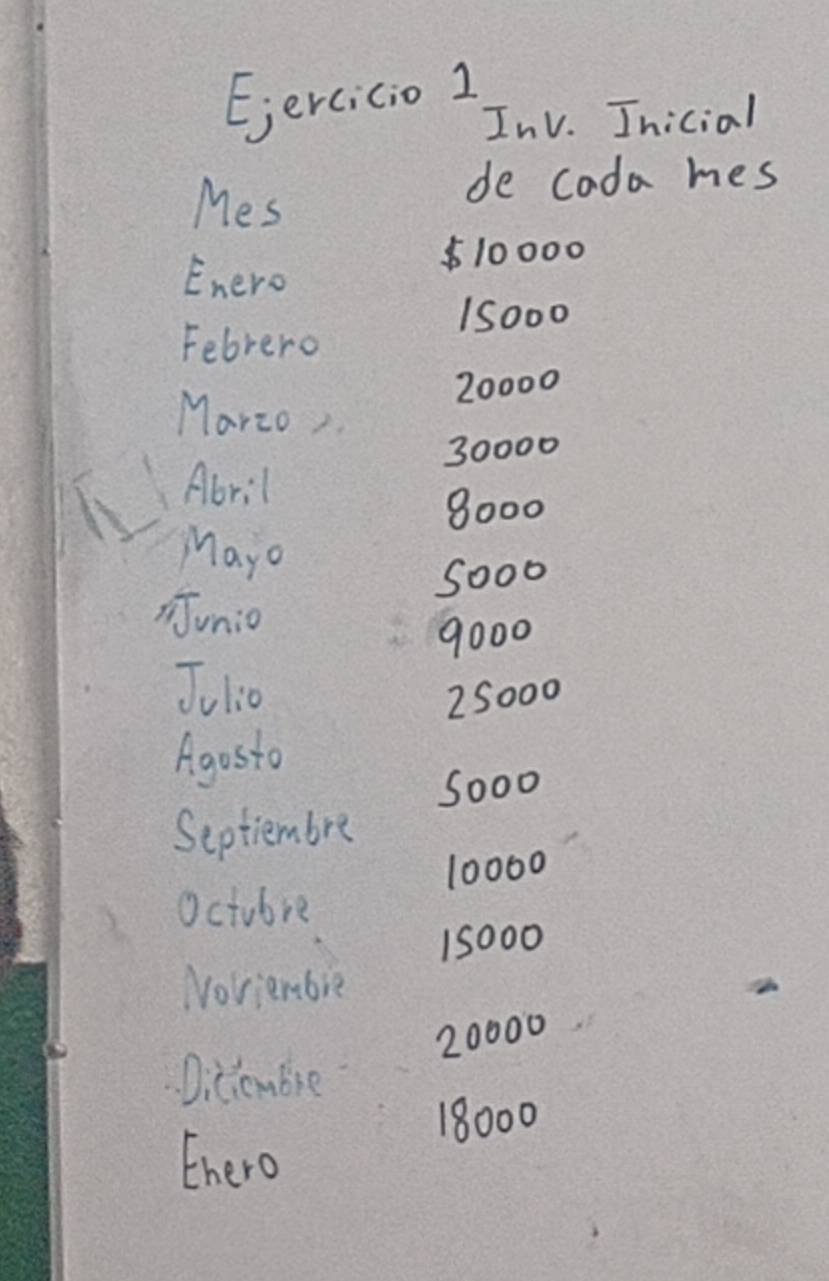 Ejercicio 1
Inv. Inicial
de cada mes
Mes
Enero $10000
Febrero 15000
Marzo 20000
Abril 30000
Mayo 8000
Junio 5000
Julio 9000
Agosto 25000
Septiembre 5000
Octubre 10000
Noviembre 15000
Diciembre 20000
Enero 18000